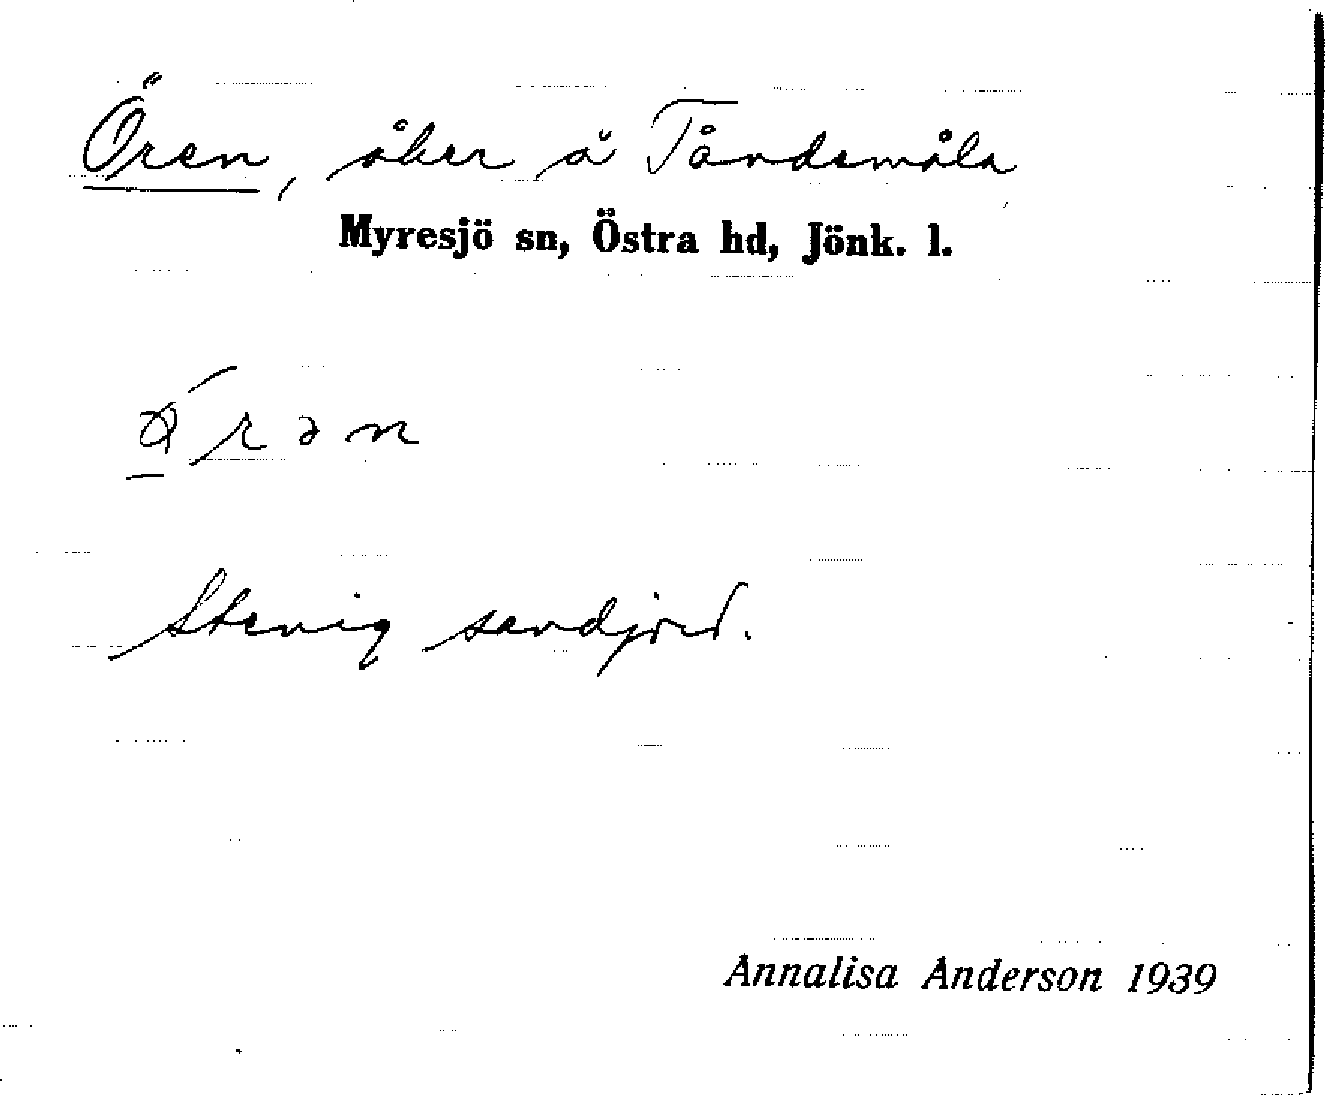 Ören, åker å Tåndemåla
Myresjö sn, Östra hd, Jönk. l.
Stenig sandjord.
Annalisa Anderson 1939